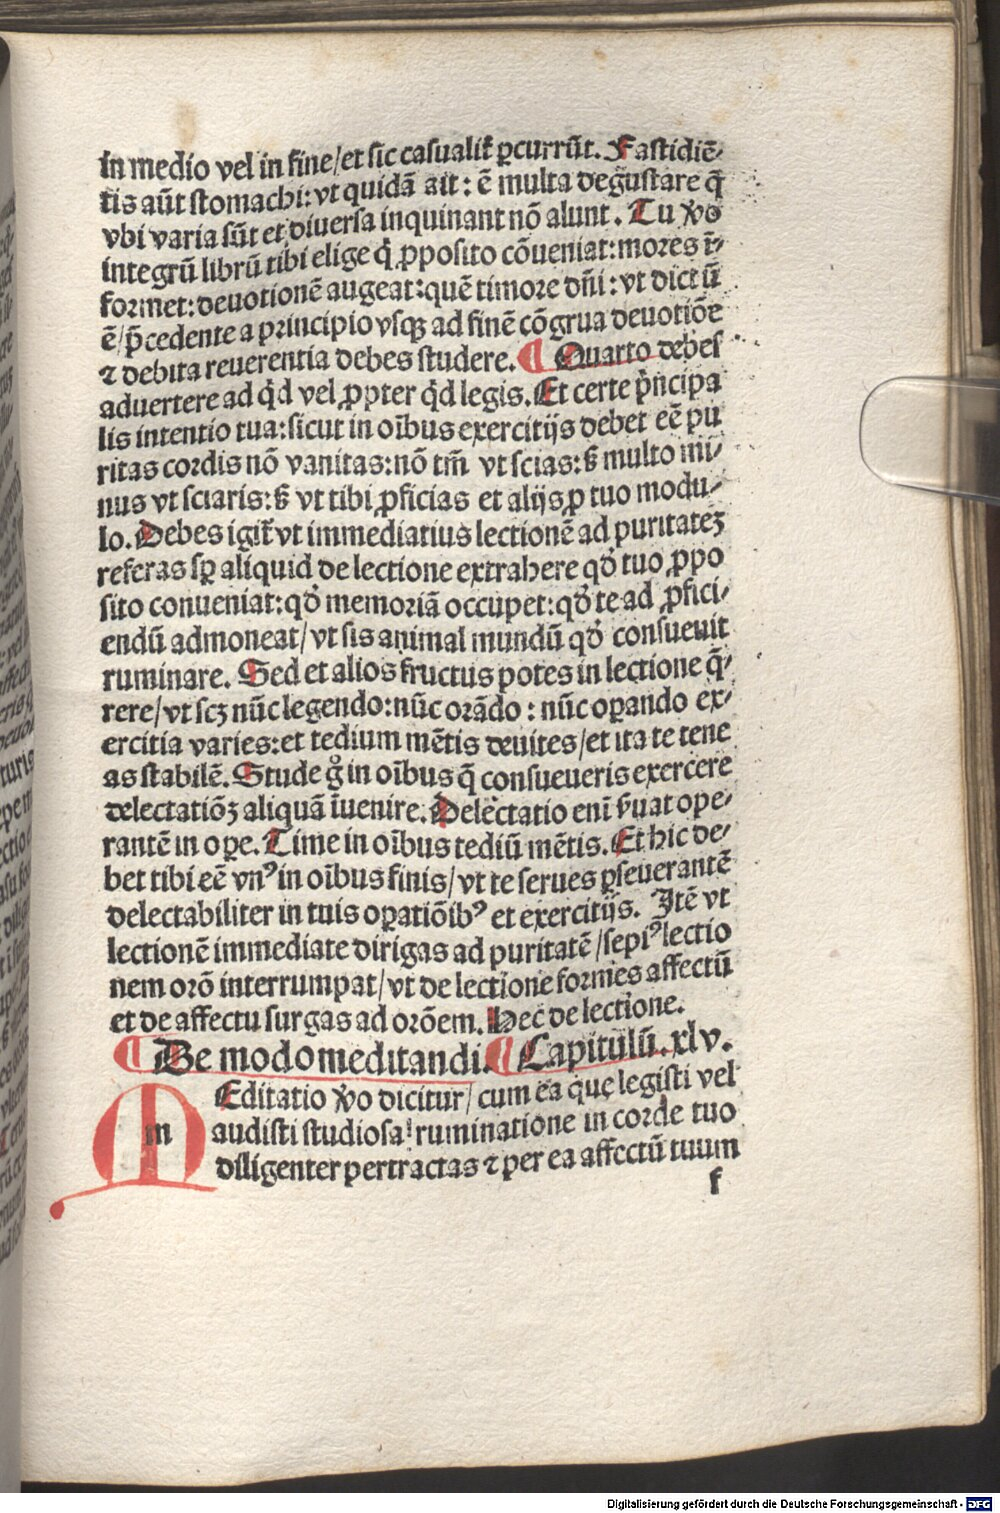 in medio vel in fine/et sic casualit̃ ꝑcurrũt. Fastidiẽ⸗
tis aũt stomachi: vt quidã ait: ẽ multa degustare q̃
vbi varia sũt et diuersa inquinant nõ alunt. Tu v̾o
integrũ librũ tibi elige q̇ ꝓposito cõueniat: mores ĩ⸗
formet: deuotionẽ augeat: quẽ timore dñi: vt dictũ
ẽ/p̃cedente a principio vsqꝫ ad finẽ cõgrua deuotiõe
⁊ debita reuerentia debes studere. ¶ Quarto debes
aduertere ad qḋ vel ꝓpter qḋ legis. Et certe p̃ncipa
lis intentio tua: sicut in oĩbus exercitijs debet eẽ pu
ritas cordis nõ vanitas: nõ tm̃ vt scias: ß multo mi⸗
nus vt sciaris: ß vt tibi ꝓficias et alijs ꝑ tuo modu⸗
lo. Debes igit̃ vt immediatius lectionẽ ad puritateꝫ
referas sꝑ aliquid de lectione extrahere qḋ tuo ꝓpo
sito conueniat: qḋ memoriã occupet: qḋ te ad ꝓfici⸗
endũ admoneat/vt sis animal mundũ qḋ consueuit
ruminare. Sed et alios fructus potes in lectione q̃⸗
rere/vt scꝫ nũc legendo: nũc orãdo: nũc oꝑando ex⸗
ercitia varies: et tedium mẽtis deuites/et ita te tene
as stabilẽ. Stude g̊ in oĩbus q̃ consueueris exercere
delectatiõꝫ aliquã ĩuenire. Delectatio enĩ ẜuat ope⸗
rantẽ in oꝑe. Time in oĩbus tediũ mẽtis. Et hic de⸗
bet tibi eẽ vnꝰ in oĩbus finis/vt te serues ꝑseuerantẽ
delectabiliter in tuis oꝑatiõibꝰ et exercitijs. Itẽ vt
lectionẽ immediate dirigas ad puritatẽ/sepiꝰ lectio
nem orõ interrumpat/vt de lectione formes affectũ
et de affectu surgas ad orõem. Hec de lectione.
¶ De modo meditandi. ¶ Capitulũ. xlv.
m Editatio v̾o dicitur/cum ea que legisti vel
audisti studiosa ruminatione in corde tuo
diligenter pertractas ⁊ per ea affectũ tuum
f
Digitalisierung gefördert durch die Deutsche Forschungsgemeinschaft - DFG